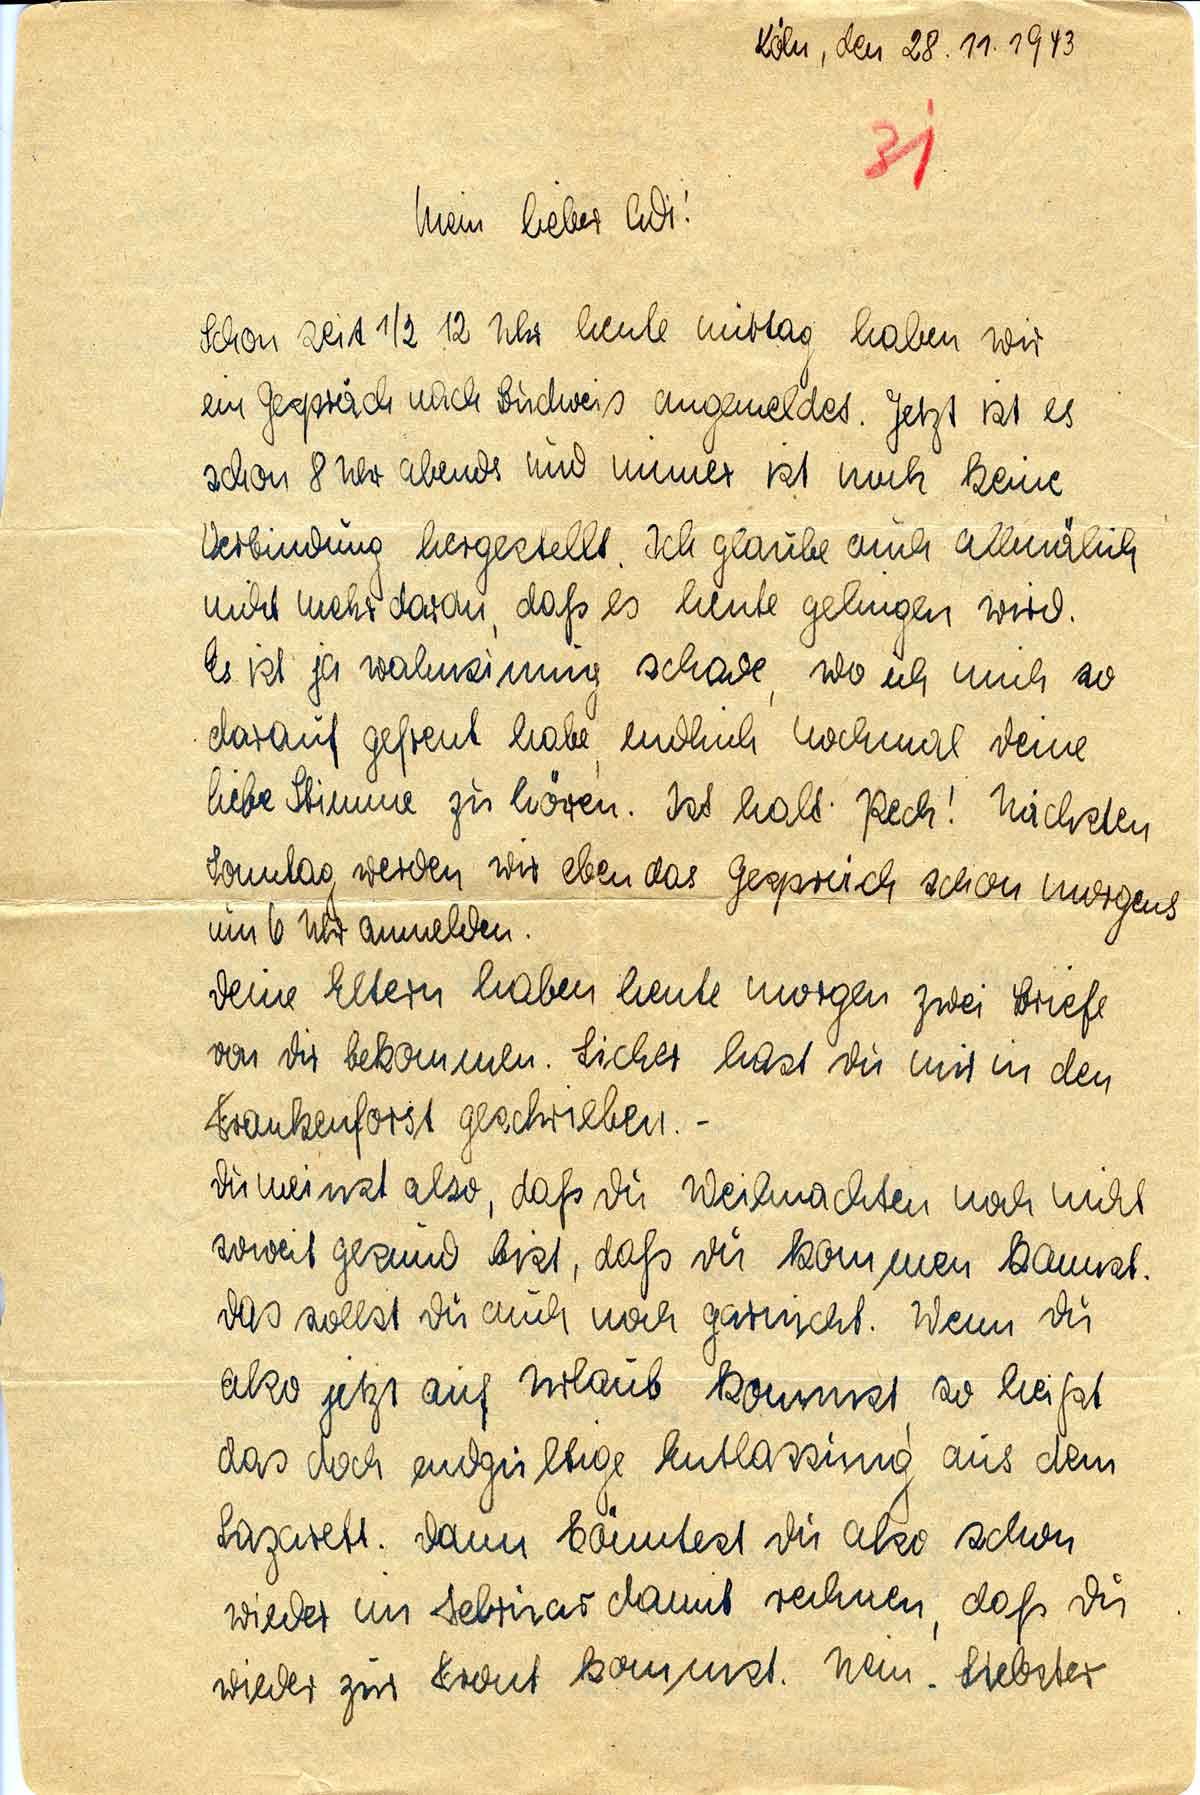 Köln, den 28.11.1943
31
Mein lieber Adi!
Schon seit 1/2 12 Uhr heute mittag haben wir
ein Gespräch nach Budweis angemeldet. Jetzt ist es
schon 8 Uhr abends und immer ist noch keine
Verbindung hergestellt. Ich glaube auch allmälich
nicht mehr daran, daß es heute gelingen wird.
Es ist ja wahnsinnig schade, wo ich mich so
darauf gefreut habe, endlich nochmal deine
liebe Stimme zu hören. Ist halt Pech! Nächsten
Sonntag werden wir eben das Gespräch schon morgens
um 6 Uhr anmelden.
Deine Eltern haben heute morgen zwei Briefe
von dir bekommen. Sicher hast du mir in den
Frankenforst geschrieben. -
Du meinst also, daß du Weihnachten noch nicht
soweit gesund bist, daß du kommen kannst.
Das sollst du auch noch garnicht. Wenn du
also jetzt auf Urlaub kommst, so heißt
das doch endgültige Entlassung aus dem
Lazarett. Dann könntest du also schon
wieder im Februar damit rechnen, daß du
wieder zur Front kommst. Nein. Liebster